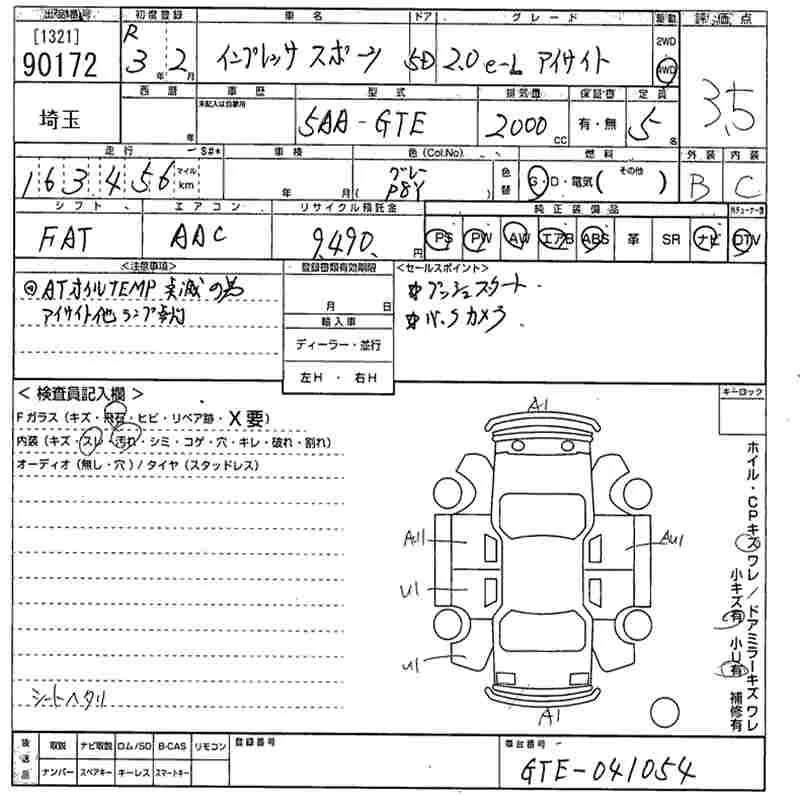 出品番号 初度登録 車名 ドア グレード 駆動 評価点
[1321] R 2WD
90172 3年 2月 インプレッサ スポーツ 5D 2.0 e-L アイサイト 4WD 3.5
西暦 車歴 型式 排気量 保証書 定員
未記入は自家用
埼玉 年 5AA-GTE 2000cc 有・無 5名
走行 S#* 車検 色(Col.No) 燃料 外装 内装
163,456 マイル km 年 月 グレー P8Y 色替 G・D・電気( その他 ) B C
シフト エアコン リサイクル預託金 純正装備品
FAT AAC 9,490円 PS PW AW エアB ABS 革 SR ナビ TV
<注意事項> 登録書類有効期限 <セールスポイント>
ATオイルTEMP 点滅の為 月 日 プッシュスタート
アイサイト他ランプ点灯 輸入車 バックカメラ
ディーラー・並行
左H・右H
<検査員記入欄> キーロック
Fガラス(キズ・飛石・ヒビ・リペア跡・X要)
内装(キズ・スレ・汚れ・シミ・コゲ・穴・キレ・破れ・割れ)
オーディオ(無し・穴)/タイヤ(スタッドレス)
A1
AU1 AU1
U1
U1
A1
ホイル・CPキズワレ/ドアミラーキズワレ
小キズ有 小U有 補修有
シートヘタリ
後送品 取説 ナビ取説 ロム/SD B-CAS リモコン 登録番号 車台番号
ナンバー スペアキー キーレス スマートキー GTE-041054